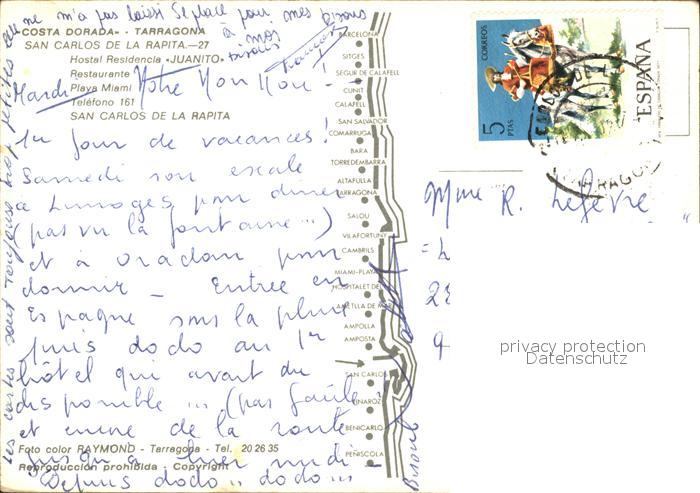 COSTA DORADA - TARRAGONA
SAN CARLOS DE LA RAPITA.—27
Hostal Residencia «JUANITO»
Restaurante
Playa Miami
Teléfono 161
SAN CARLOS DE LA RAPITA
ne m'a pas laissé de place pour mes bisous
à nos
bisous
Mardi
Notre Mon Mou!
1er jour de vacances!
Samedi soir escale
à Limoges pour diner
(pas vu la fontaine...)
et à Oradour pour
dormir - Entrée en
Espagne sous la pluie
puis dodo au 1er
hôtel qui avait du
disponible ... (pas facile!
et encore de la route
jusqu'à hier midi -
Depuis dodo.. dodo...
les cartes sont toujours trop petites
BARCELONA
SITGES
SEGUR DE CALAFELL
CUNIT
CALAFELL
SAN SALVADOR
COMARRUGA
BARA
TORREDEMBARRA
ALTAFULLA
TARRAGONA
SALOU
VILAFORTUNY
CAMBRILS
MIAMI-PLAYA
HOSPITALET DEL
AMETLLA DE MAR
AMPOLLA
AMPOSTA
SAN CARLOS
VINAROZ
BENICARLO
PEÑISCOLA
Foto color RAYMOND - Tarragona - Tel. 20 26 35
Reproducción prohibida - Copyright
CORREOS
5 PTAS
ESPAÑA
TARRAGONA
Mme R. Lefèvre
22
9
privacy protection
Datenschutz